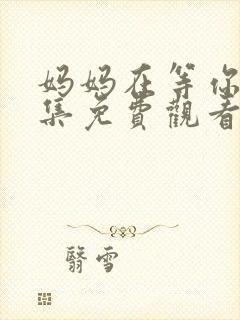 妈妈在等你
集免費觀看
翳雪